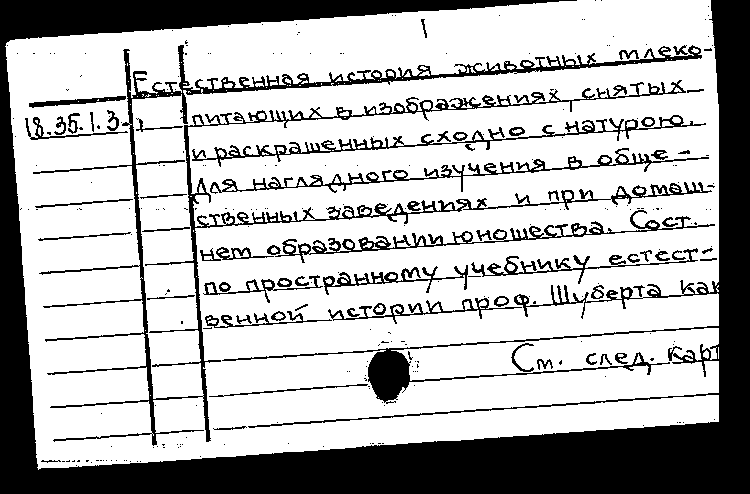 1
Естественная история животных млеко-
18.35.1.3.
питающих в изображениях, снятых
и раскрашенных сходно с натурою.
Для наглядного изучения в обще-
ственных заведениях и при домаш-
нем образовании юношества. Сост.
по пространному учебнику естест-
венной истории проф. Шуберта как
См. след. карт